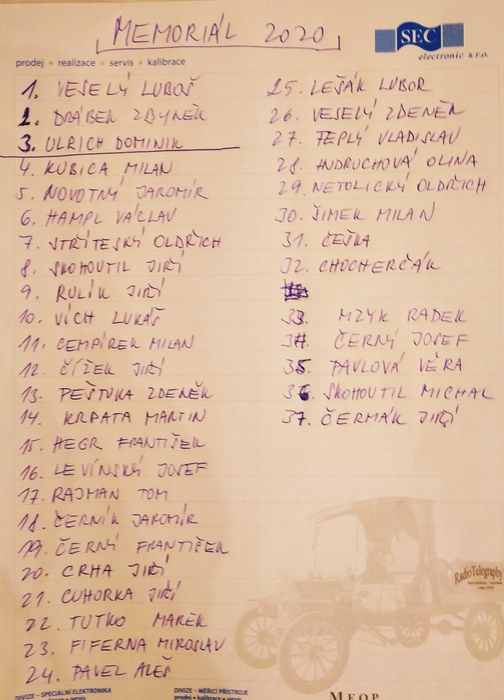 MEMORIÁL 2020
SEC
electronic s.r.o.
prodej • realizace • servis • kalibrace
1. VESELÝ LUBOŠ
2. DRÁBEK ZBYNĚK
3. ULRICH DOMINIK
4. KUBICA MILAN
5. NOVOTNÝ JAROMÍR
6. HAMPL VÁCLAV
7. STŘÍTESKÝ OLDŘICH
8. SKOHOUTIL JIŘÍ
9. RULÍK JIŘÍ
10. VÍCH LUKÁŠ
11. CEMPÍREK MILAN
12. ČÍŽEK JIŘÍ
13. PEŠTUKA ZDENĚK
14. KRPATA MARTIN
15. HEGR FRANTIŠEK
16. LEVÍNSKÝ JOSEF
17. RAJMAN TOM
18. ČERNÍK JAROMÍR
19. ČERNÝ FRANTIŠEK
20. CRHA JIŘÍ
21. CUHORKA JIŘÍ
22. TUTKO MAREK
23. FIFERNA MIROSLAV
24. PAVEL ALEŠ
25. LEŠÁK LUBOR
26. VESELÝ ZDENĚK
27. TEPLÝ VLADISLAV
28. ANDRUCHOVÁ OLINA
29. NETOLICKÝ OLDŘICH
30. ŠIMEK MILAN
31. ČEŠKA
32. CHOCHERČÁK
33. MZYK RADEK
34. ČERNÝ JOSEF
35. PAVLOVÁ VĚRA
36. SKOHOUTIL MICHAL
37. ČERMÁK JIŘÍ
RadioTelegraphy
DIVIZE - SPECIÁLNÍ ELEKTRONIKA
DIVIZE - MĚŘICÍ PŘÍSTROJE
prodej • kalibrace • servis
MEOP